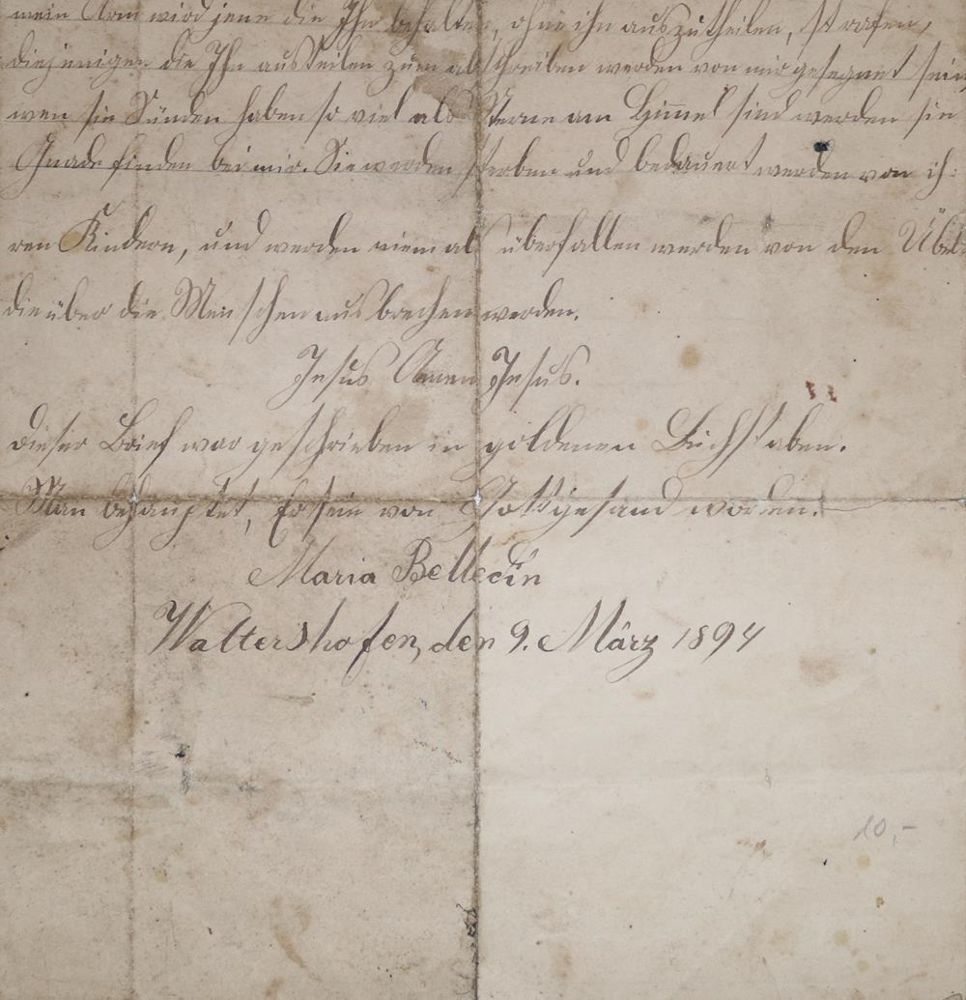 mein Arm wird jene die Ihn behalten, ohne ihn auszutheilen, strafen,
diejenigen die Ihn austeilen zum abschreiben werden von mir gesegnet sein,
wen sie Sünden haben so viel als Sterne am Himmel sind werden sie
Gnade finden bei mir. Sie werden sterben und bedauert werden von ih-
ren Kindern, und werden niemals überfallen werden von den Übel
die über die Menschen ausbrechen werden.
Jesus Amen Jesus.
Dieser Brief war geschrieben in goldenen Buchstaben.
Man behauptet, Er sein von Gott gesand worden.
Maria Bellecin
Waltershofen, den 9. März 1894
10,-